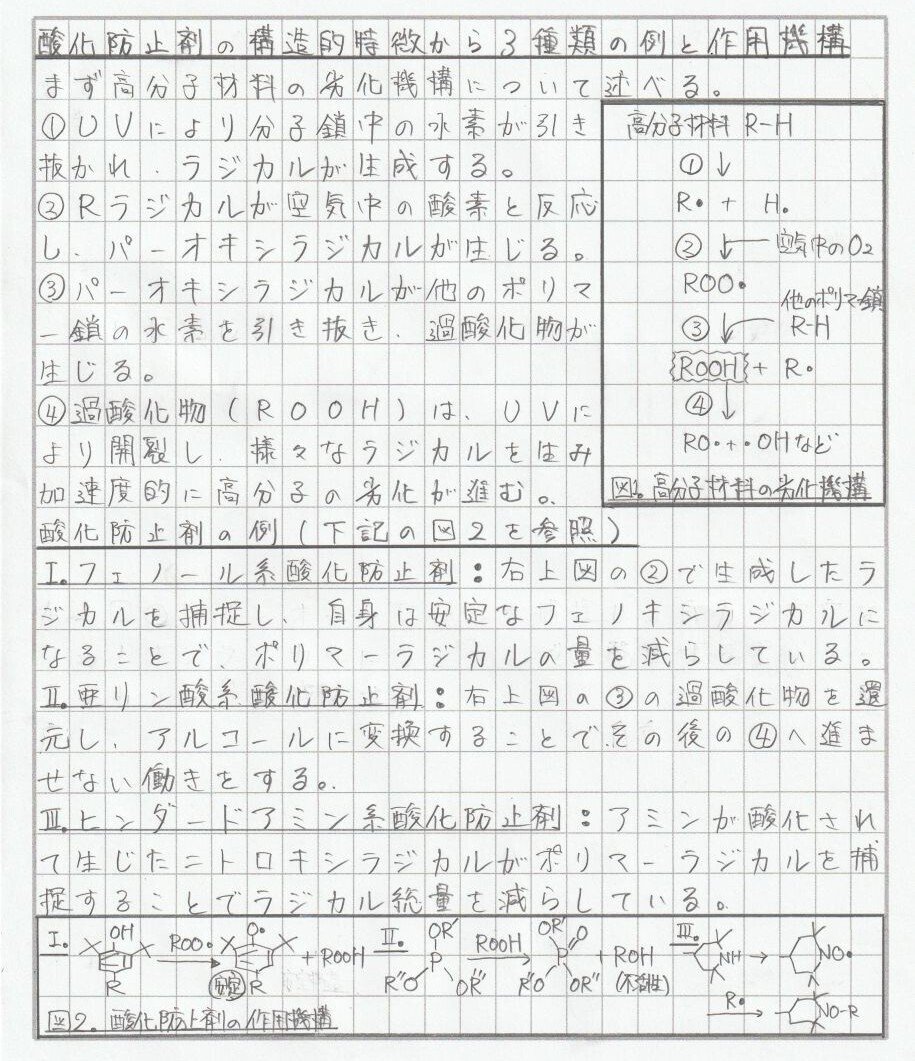 酸化防止剤の構造的特徴から3種類の例と作用機構
まず高分子材料の劣化機構について述べる。
①UVにより分子鎖中の水素が引き
抜かれ、ラジカルが生成する。
②Rラジカルが空気中の酸素と反応
し、パーオキシラジカルが生じる。
③パーオキシラジカルが他のポリマ
ー鎖の水素を引き抜き、過酸化物が
生じる。
④過酸化物(ROOH)は、UVに
より開裂し、様々なラジカルを生み
加速度的に高分子の劣化が進む。
高分子材料 R-H
① ↓
R• + H•
② ↓ 空気中のO2
ROO•
他のポリマ鎖
③ ↓ R-H
ROOH + R•
④ ↓
RO•+•OHなど
図1.高分子材料の劣化機構
酸化防止剤の例(下記の図2を参照)
Ⅰ.フェノール系酸化防止剤:右上図の②で生成したラ
ジカルを捕捉し、自身は安定なフェノキシラジカルに
なることで、ポリマーラジカルの量を減らしている。
Ⅱ.亜リン酸系酸化防止剤:右上図の③の過酸化物を還
元し、アルコールに変換することで、その後の④へ進ま
せない働きをする。
Ⅲ.ヒンダードアミン系酸化防止剤:アミンが酸化され
て生じたニトロキシラジカルがポリマーラジカルを捕
捉することでラジカル総量を減らしている。
Ⅰ. OH R ROO• → O• R 安定 + ROOH
Ⅱ. OR' P R''O OR'' ROOH → OR' P O R''O OR'' + ROH (不活性)
Ⅲ. NH → NO•
R• → NO-R
図2.酸化防止剤の作用機構